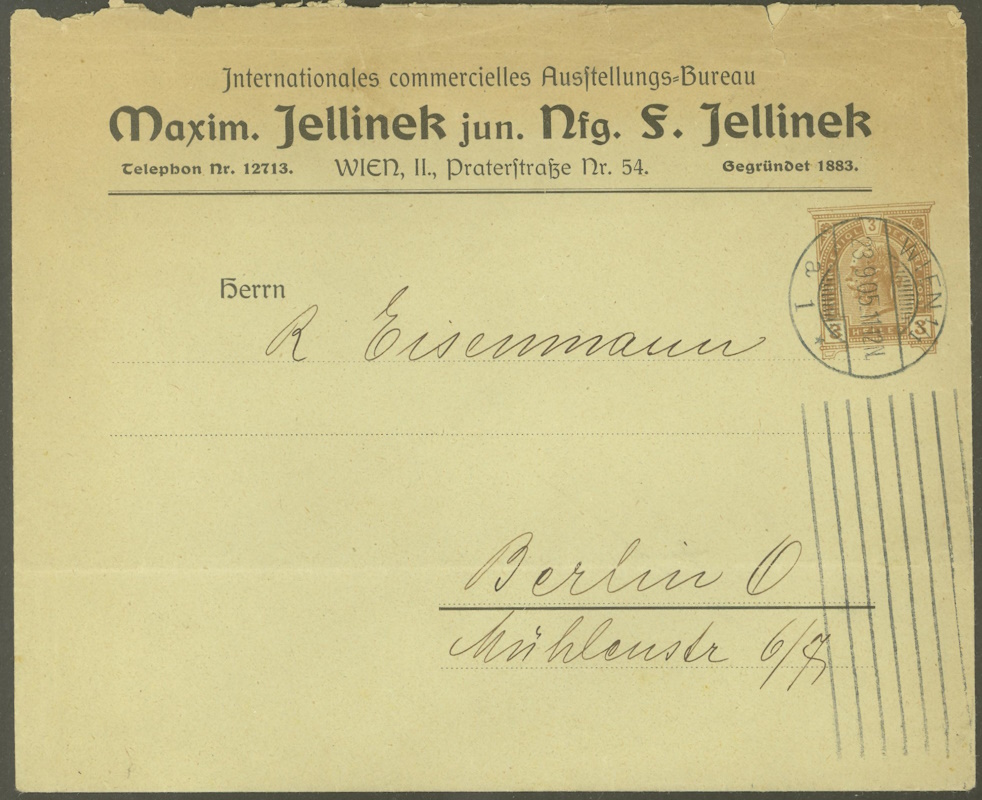 Internationales commercielles Ausſtellungs-Bureau
Maxim. Jellinek jun. Nfg. F. Jellinek
Telephon Nr. 12713. WIEN, II., Praterſtraße Nr. 54. Gegründet 1883.
Herrn
R Eisenmann
Berlin O
Mühlenstr 6/7
WIEN 1
1 a
3
3 HELLER 3